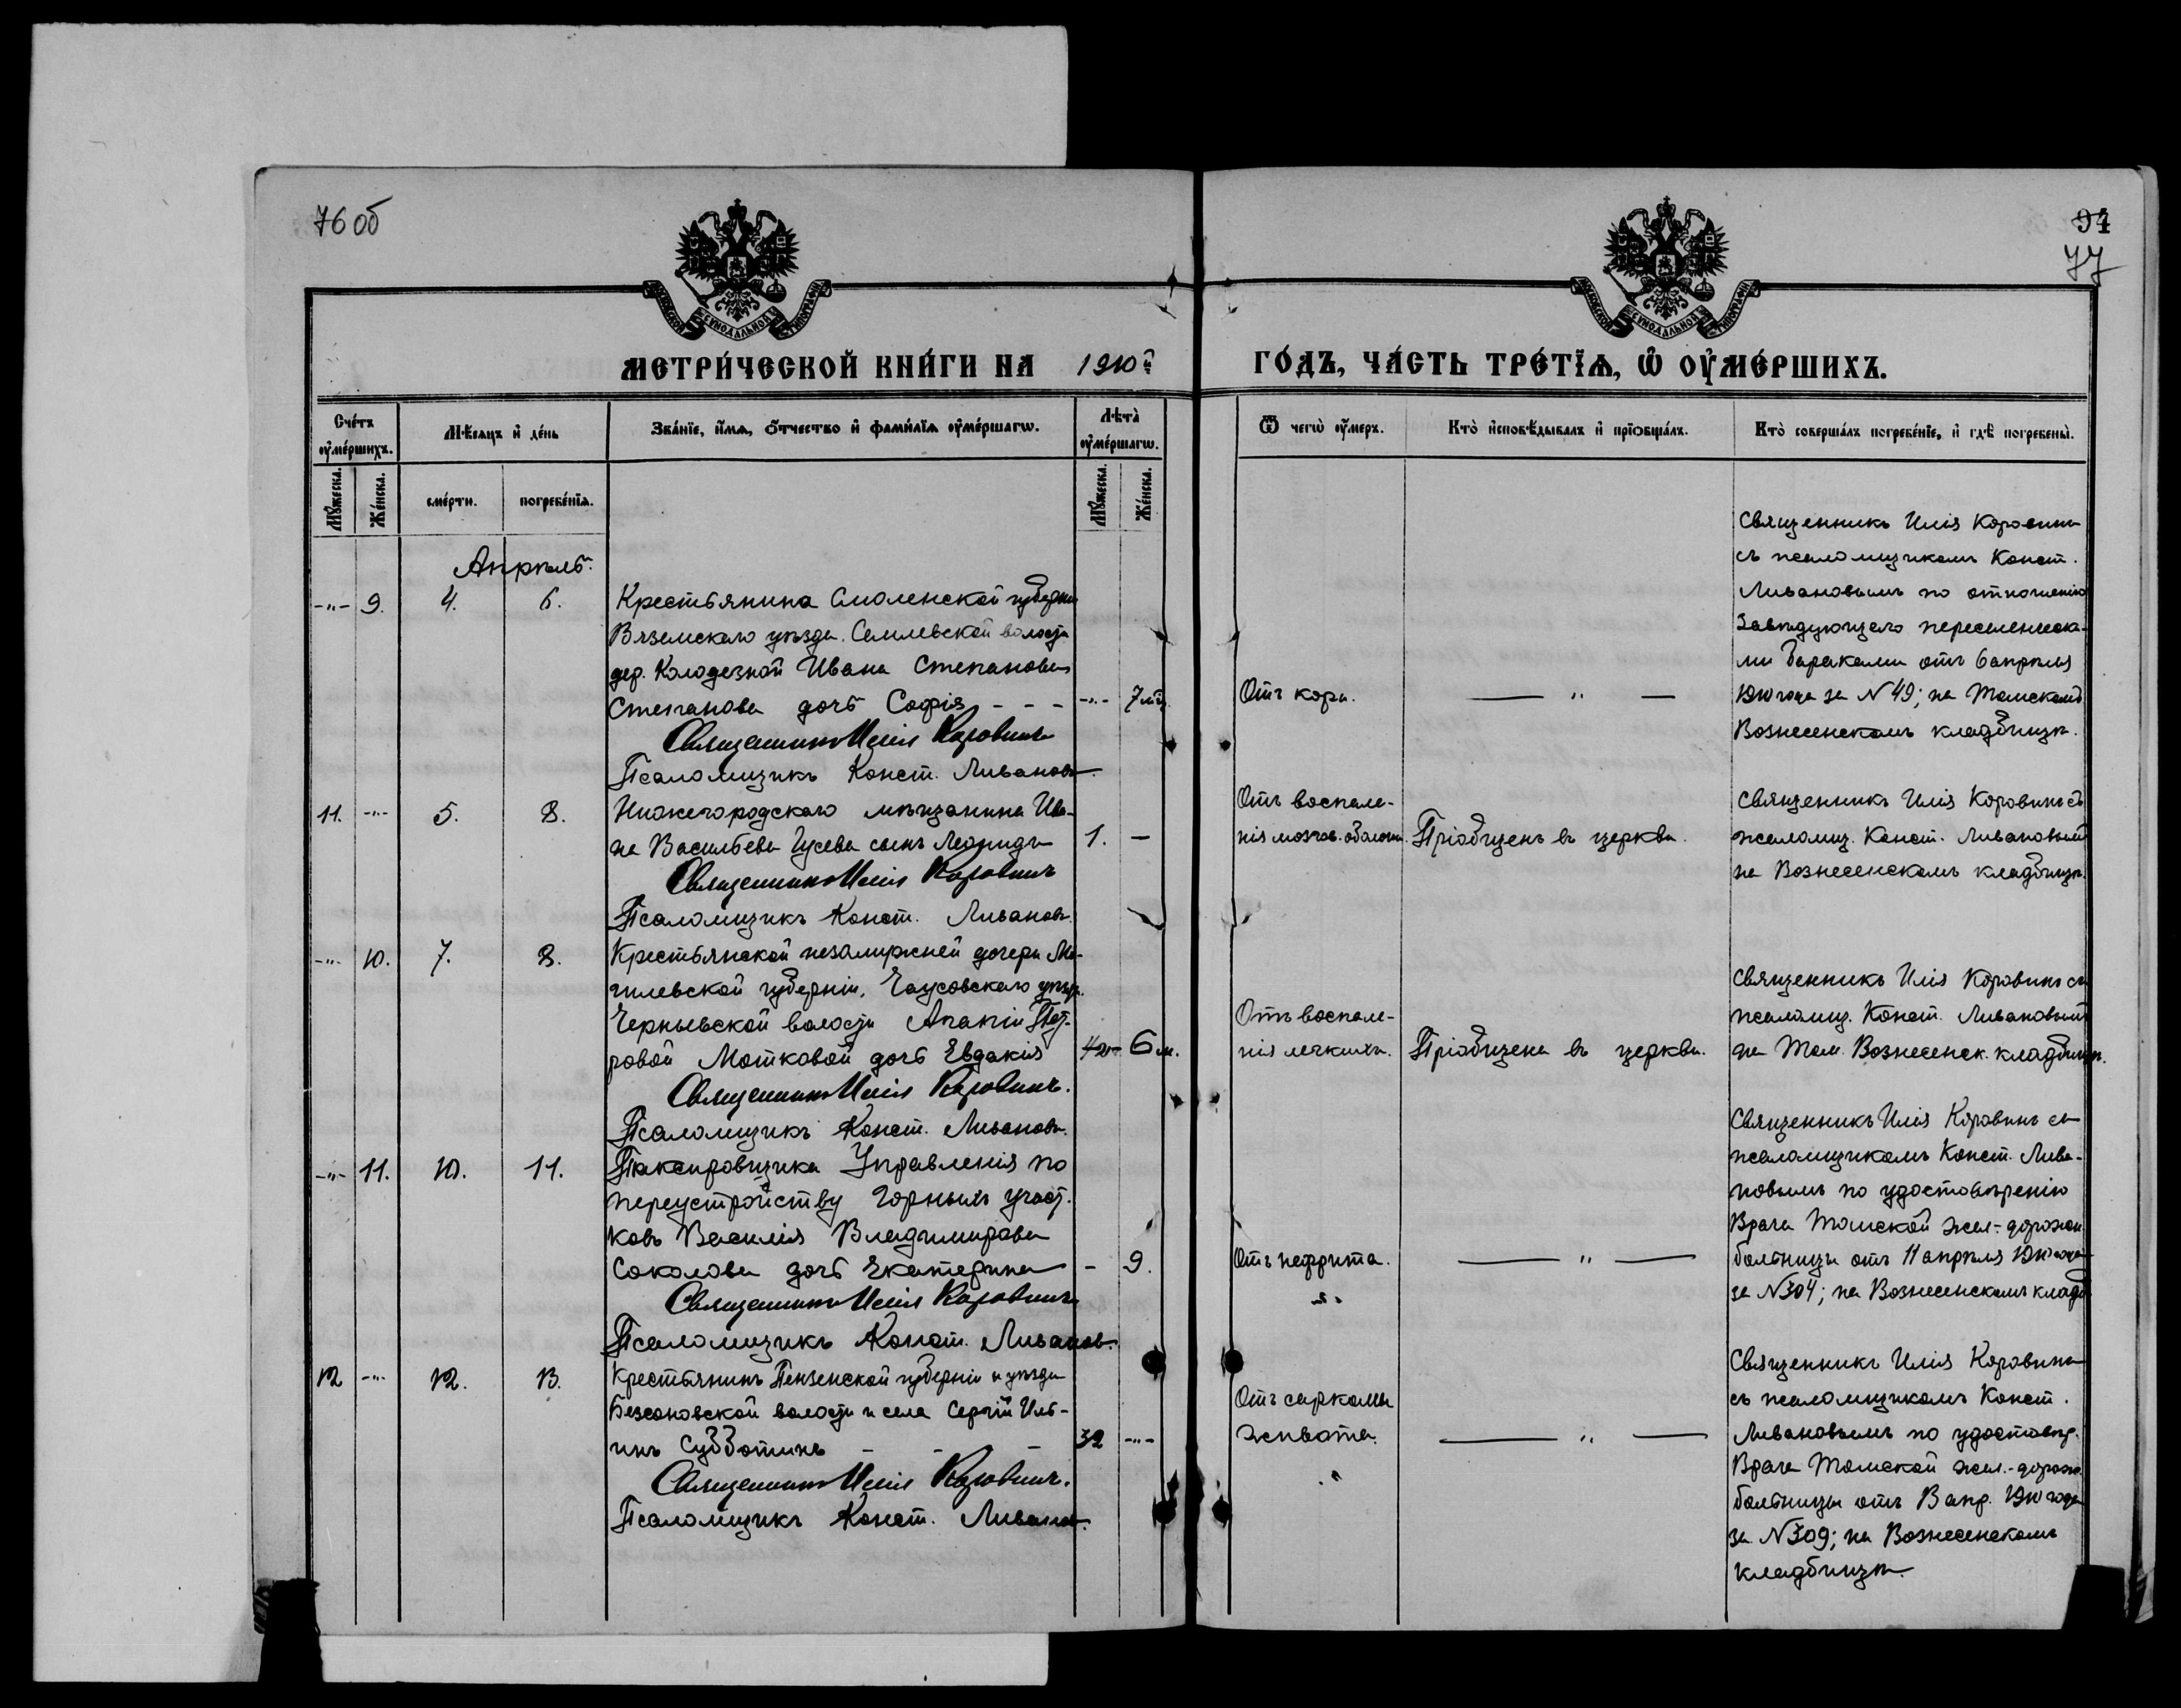 76 об
94
77
МОСКОВСКОЙ СѴНОДАЛЬНОЙ ТИПОГРАФІИ
МОСКОВСКОЙ СѴНОДАЛЬНОЙ ТИПОГРАФІИ
МЕТРИ́ЧЕСКОЙ КНИ́ГИ НА 1910й ГО́ДЪ, ЧА́СТЬ ТРЕ́ТЇѦ, Ѡ ОУ҆МЕ́РШИХЪ.
Сче́тъ оу҆ме́ршихъ.
Мѣ́сѧцъ и҆ де́нь
Зва́нїе, и҆́мѧ, ѻ҆́тчество и҆ фами́лїѧ оу҆ме́ршагѡ.
Лѣ̑та оу҆ме́ршагѡ.
Ѿ чегѡ̀ оу҆́меръ.
Кто̀ и҆сповѣ́дывалъ и҆ прїѡбща́лъ.
Кто̀ соверша́лъ погребе́нїе, и҆ гдѣ̀ погребены̀.
Мꙋ́жеска.
Же́нска.
сме́рти.
погребе́нїѧ.
Мꙋ́жеска.
Же́нска.
Апрѣль.
-"- 9. 4. 6.
Крестьянина Смоленской губерніи
Вяземскаго уѣзда, Семлевской волости
дер. Колодезной Ивана Степанова
Степанова дочь Софія - - - -"- 7 мѣ.
Священникъ Илія Коровинъ
Псаломщикъ Конст. Ливановъ.
От кори.
— " —
Священникъ Илія Коровинъ
съ псаломщикомъ Конст.
Ливановымъ по отношенію
Завѣдующаго переселенчески-
ми бараками отъ 6 апрѣля
1910 года за N 49; на Томскомъ
Вознесенскомъ кладбищѣ.
11. -"- 5. 8.
Нижегородскаго мѣщанина Ива-
на Васильева Гусева сынъ Леонидъ 1. —
Священникъ Илія Коровинъ
Псаломщикъ Конст. Ливановъ.
Отъ воспале-
нія мозгов. оболочки.
Пріобщенъ въ церкви.
Священникъ Илія Коровинъ съ
псаломщ. Конст. Ливановымъ
на Вознесенскомъ кладбищѣ.
-"- 10. 7. 8.
Крестьянской незамужней дочери Мо-
гилевской губерніи, Чаусовскаго уѣзд.
Чернывской волости Агапіи Пет-
ровой Мотковой дочь Евдокія 6 м.
Священникъ Илія Коровинъ.
Псаломщикъ Конст. Ливановъ.
Отъ воспале-
нія легкихъ.
Пріобщена въ церкви.
Священникъ Илія Коровинъ съ
псаломщ. Конст. Ливановымъ
на Том. Вознесенск. кладбищѣ.
-"- 11. 10. 11.
Таксировщика Управленія по
переустройству горныхъ участ-
ковъ Василія Владимирова
Соколова дочь Екатерина - 9.
Священникъ Илія Коровинъ
Псаломщикъ Конст. Ливановъ.
Отъ нефрита.
— " —
Священникъ Илія Коровинъ съ
псаломщикомъ Конст. Лива-
новымъ по удостовѣренію
Врача Томской жел.-дорожн.
больницы отъ 11 апрѣля 1910 года
за N 304; на Вознесенскомъ кладб.
12 -"- 12. 13.
Крестьянинъ Пензенской губерніи и уѣзда
Бессоновской волости и села Сергій Иль-
инъ Субботинъ - - - 32 -"-
Священникъ Илія Коровинъ.
Псаломщикъ Конст. Ливановъ.
Отъ саркомы
живота.
— " —
Священникъ Илія Коровинъ
съ псаломщикомъ Конст.
Ливановымъ по удостовѣр.
Врача Томской жел.-дорожн.
больницы отъ 13 апр. 1910 года
за N 309; на Вознесенскомъ
кладбищѣ.